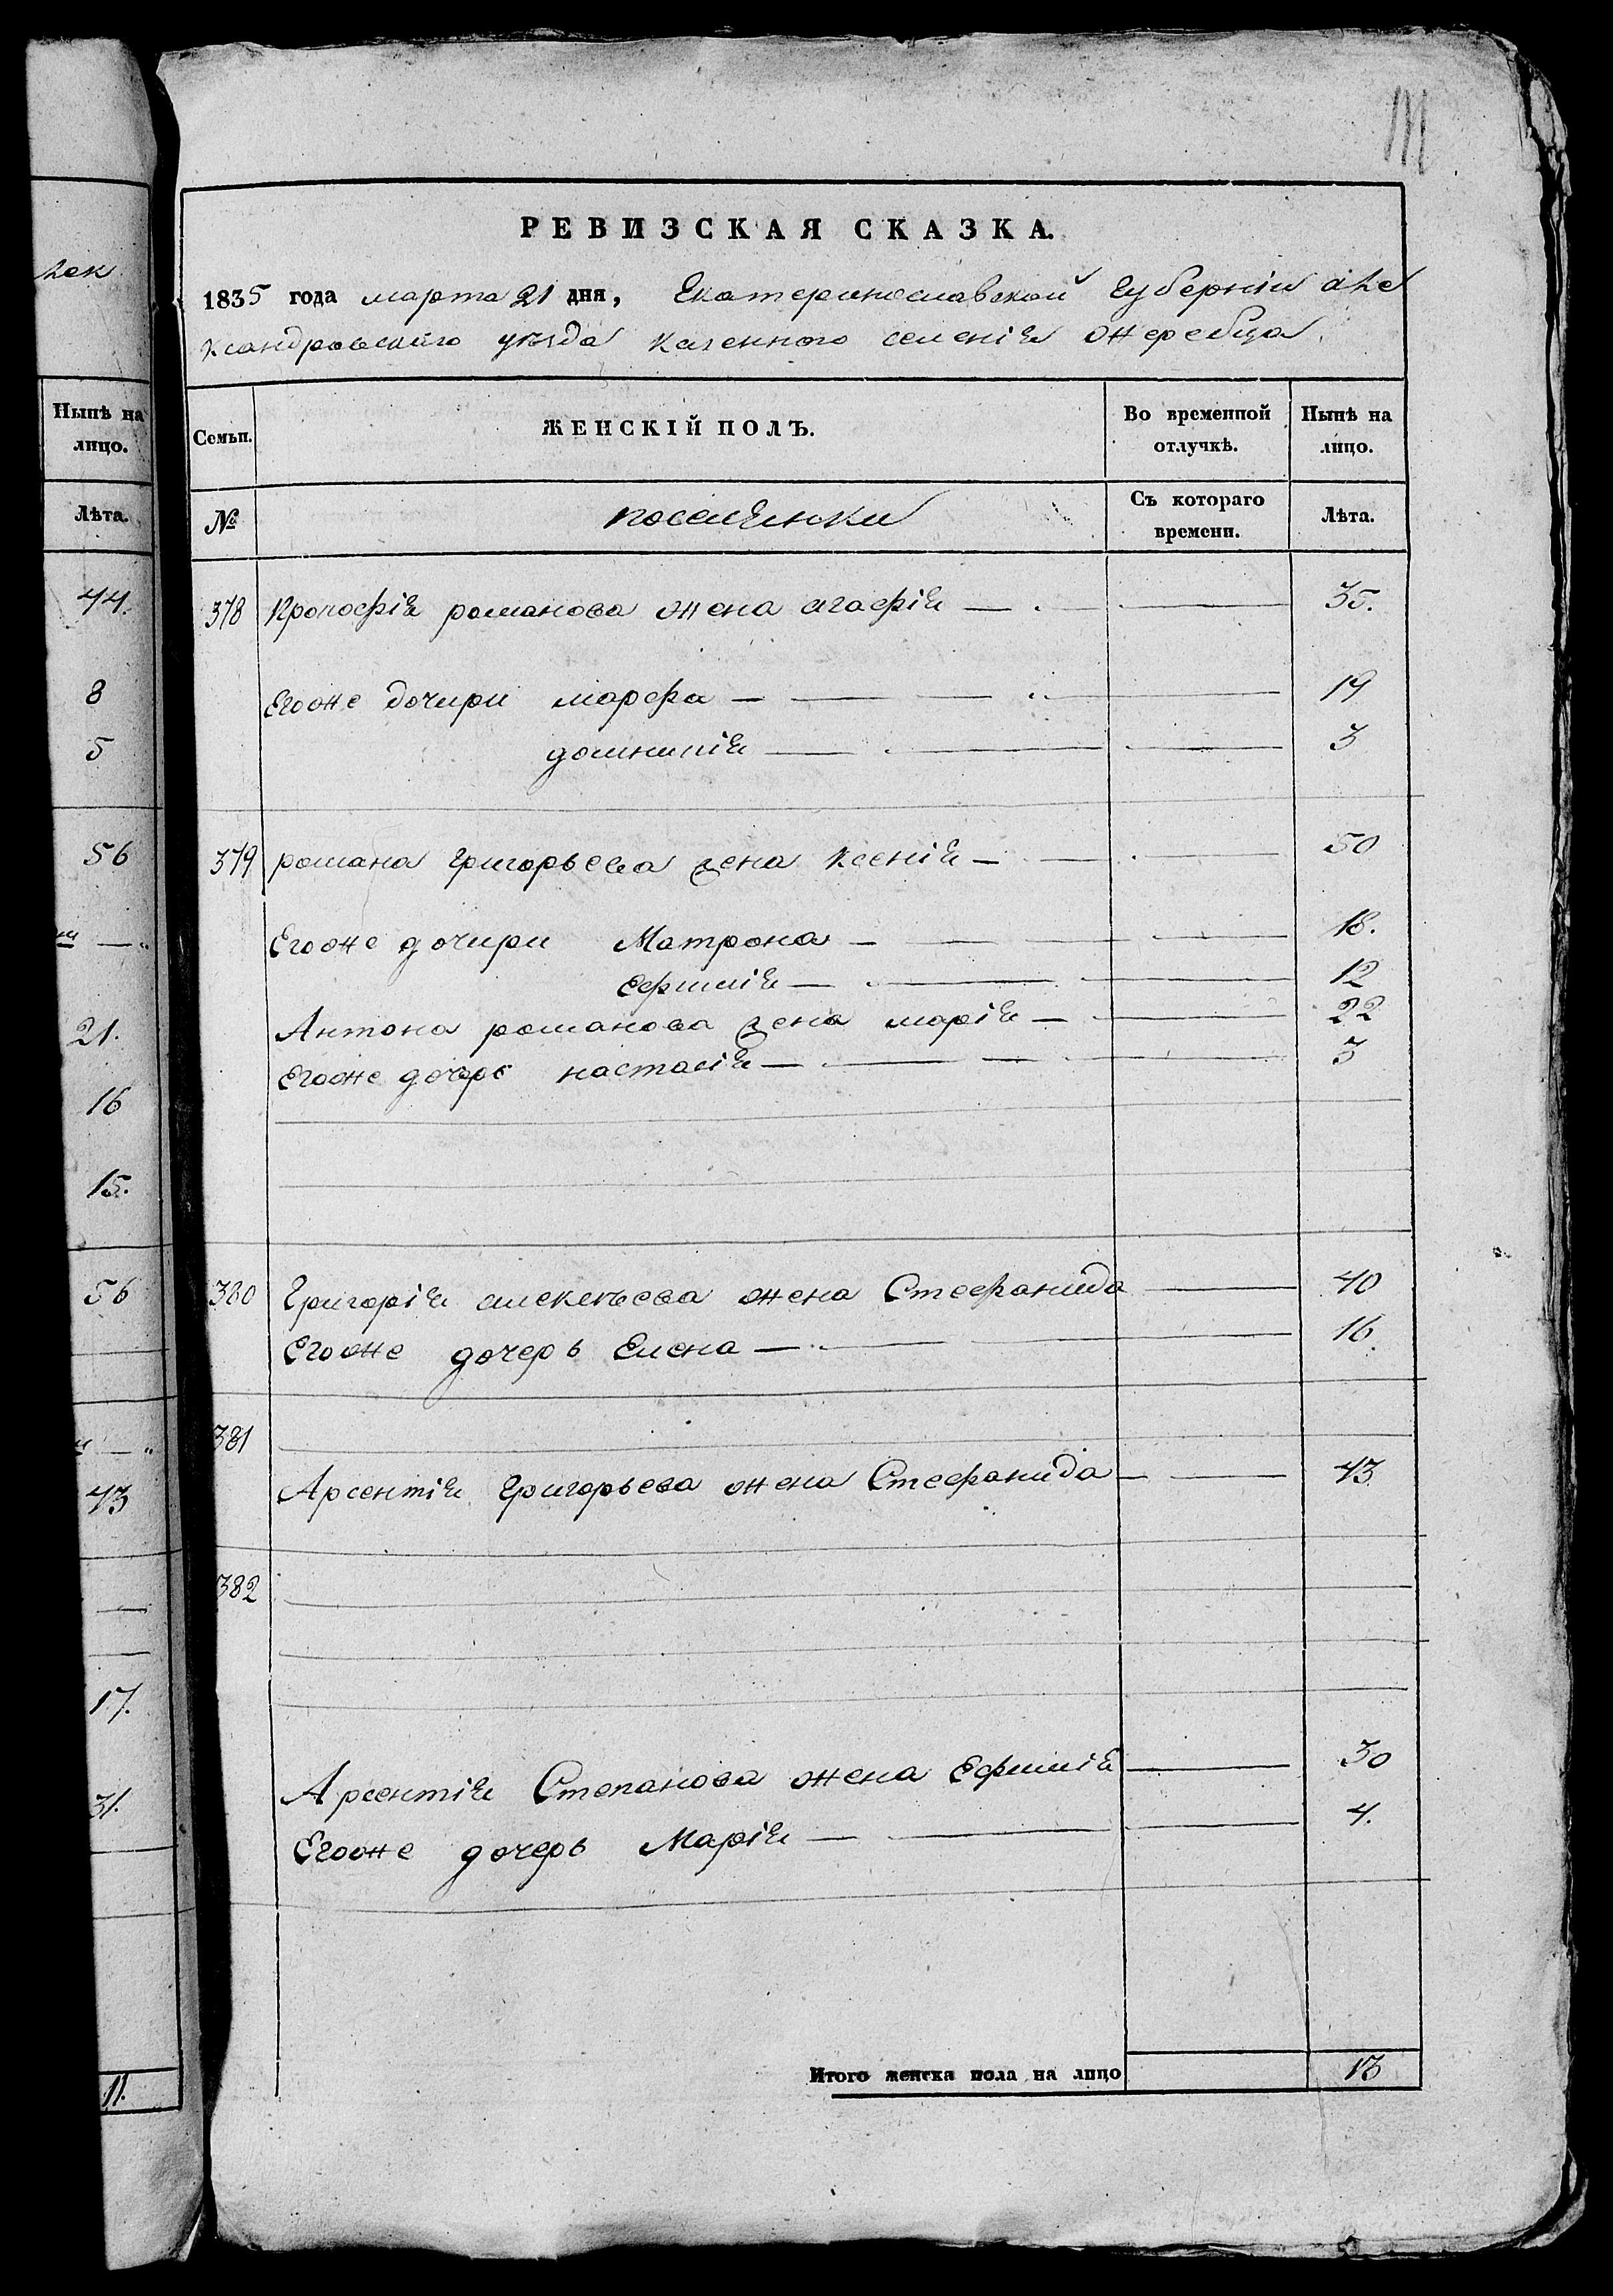 лек
Нынѣ на
лицо.
Лѣта.
44.
8
5
56
21.
16
15.
56
43
17.
31.
11.
РЕВИЗСКАЯ СКАЗКА.
1835 года марта 21 дня, Екатеринославской губерніи але
ксандровскаго уѣзда казенного селенія жеребца.
Семьи.
ЖЕНСКІЙ ПОЛЪ.
Во временной
отлучкѣ.
Нынѣ на
лицо.
№
поселянки
Съ котораго
времени.
Лѣта.
378 Прокофія романова жена агафія — 35.
Егоже дочири марфа — 19
домникія — 3
379 романа григорьева жена ксенія — 50
Егоже дочири Матрона — 18.
Ефимія — 12
Антона романова жена марія — 22
Егоже дочерь настасія — 3
380 Григорія алексъева жена Стефанида — 40
Егоже дочерь Елена — 16.
381
Арсентія григорьева жена Стефанида — 43
382
Арсентія Степанова жена Ефимія — 30
Егоже дочерь Марія — 4.
Итого женска пола на лицо 13